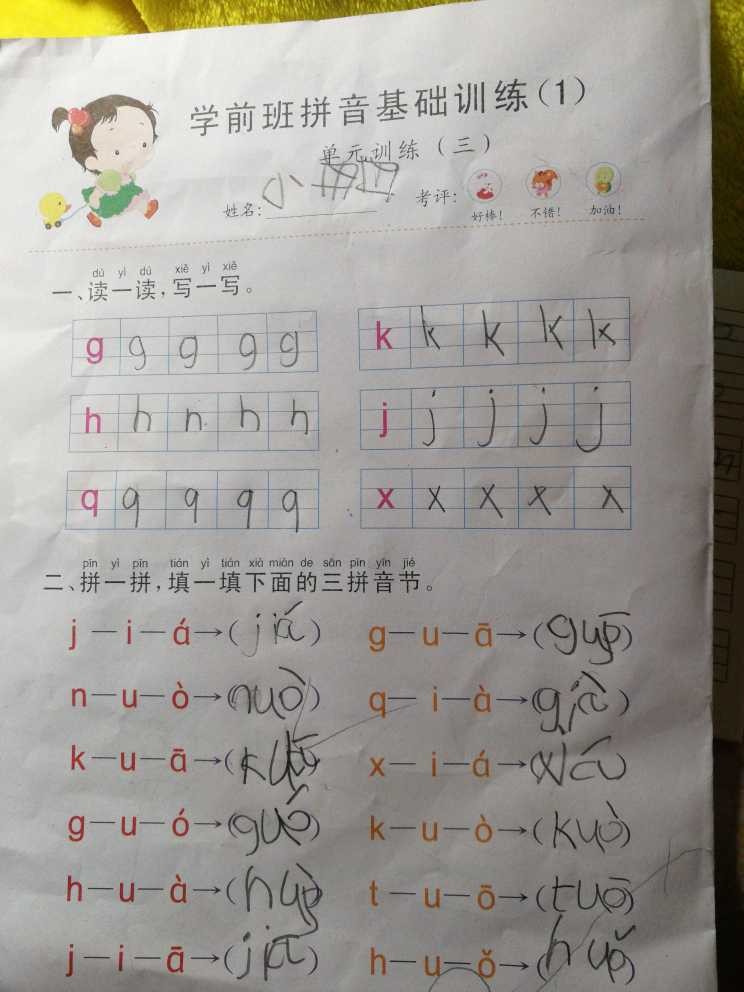 学前班拼音基础训练(1)
单元训练(三)
姓名:小 考评:
好棒! 不错! 加油!
dú yì dú xiě yì xiě
一、读一读,写一写。
g g g g g k k k k k
h h n h h j j j j j
q q q q q x x x x x
pīn yì pīn tián yì tián xià miàn de sān pīn yīn jié
二、拼一拼,填一填下面的三拼音节。
j—i—á→(jiá) g—u—ā→(guō)
n—u—ò→(nuò) q—i—à→(qià)
k—u—ā→(kuā) x—i—á→(xiá)
g—u—ó→(guó) k—u—ò→(kuò)
h—u—à→(huà) t—u—ō→(tuō)
j—i—ā→(jiā) h—u—ǒ→(huǒ)